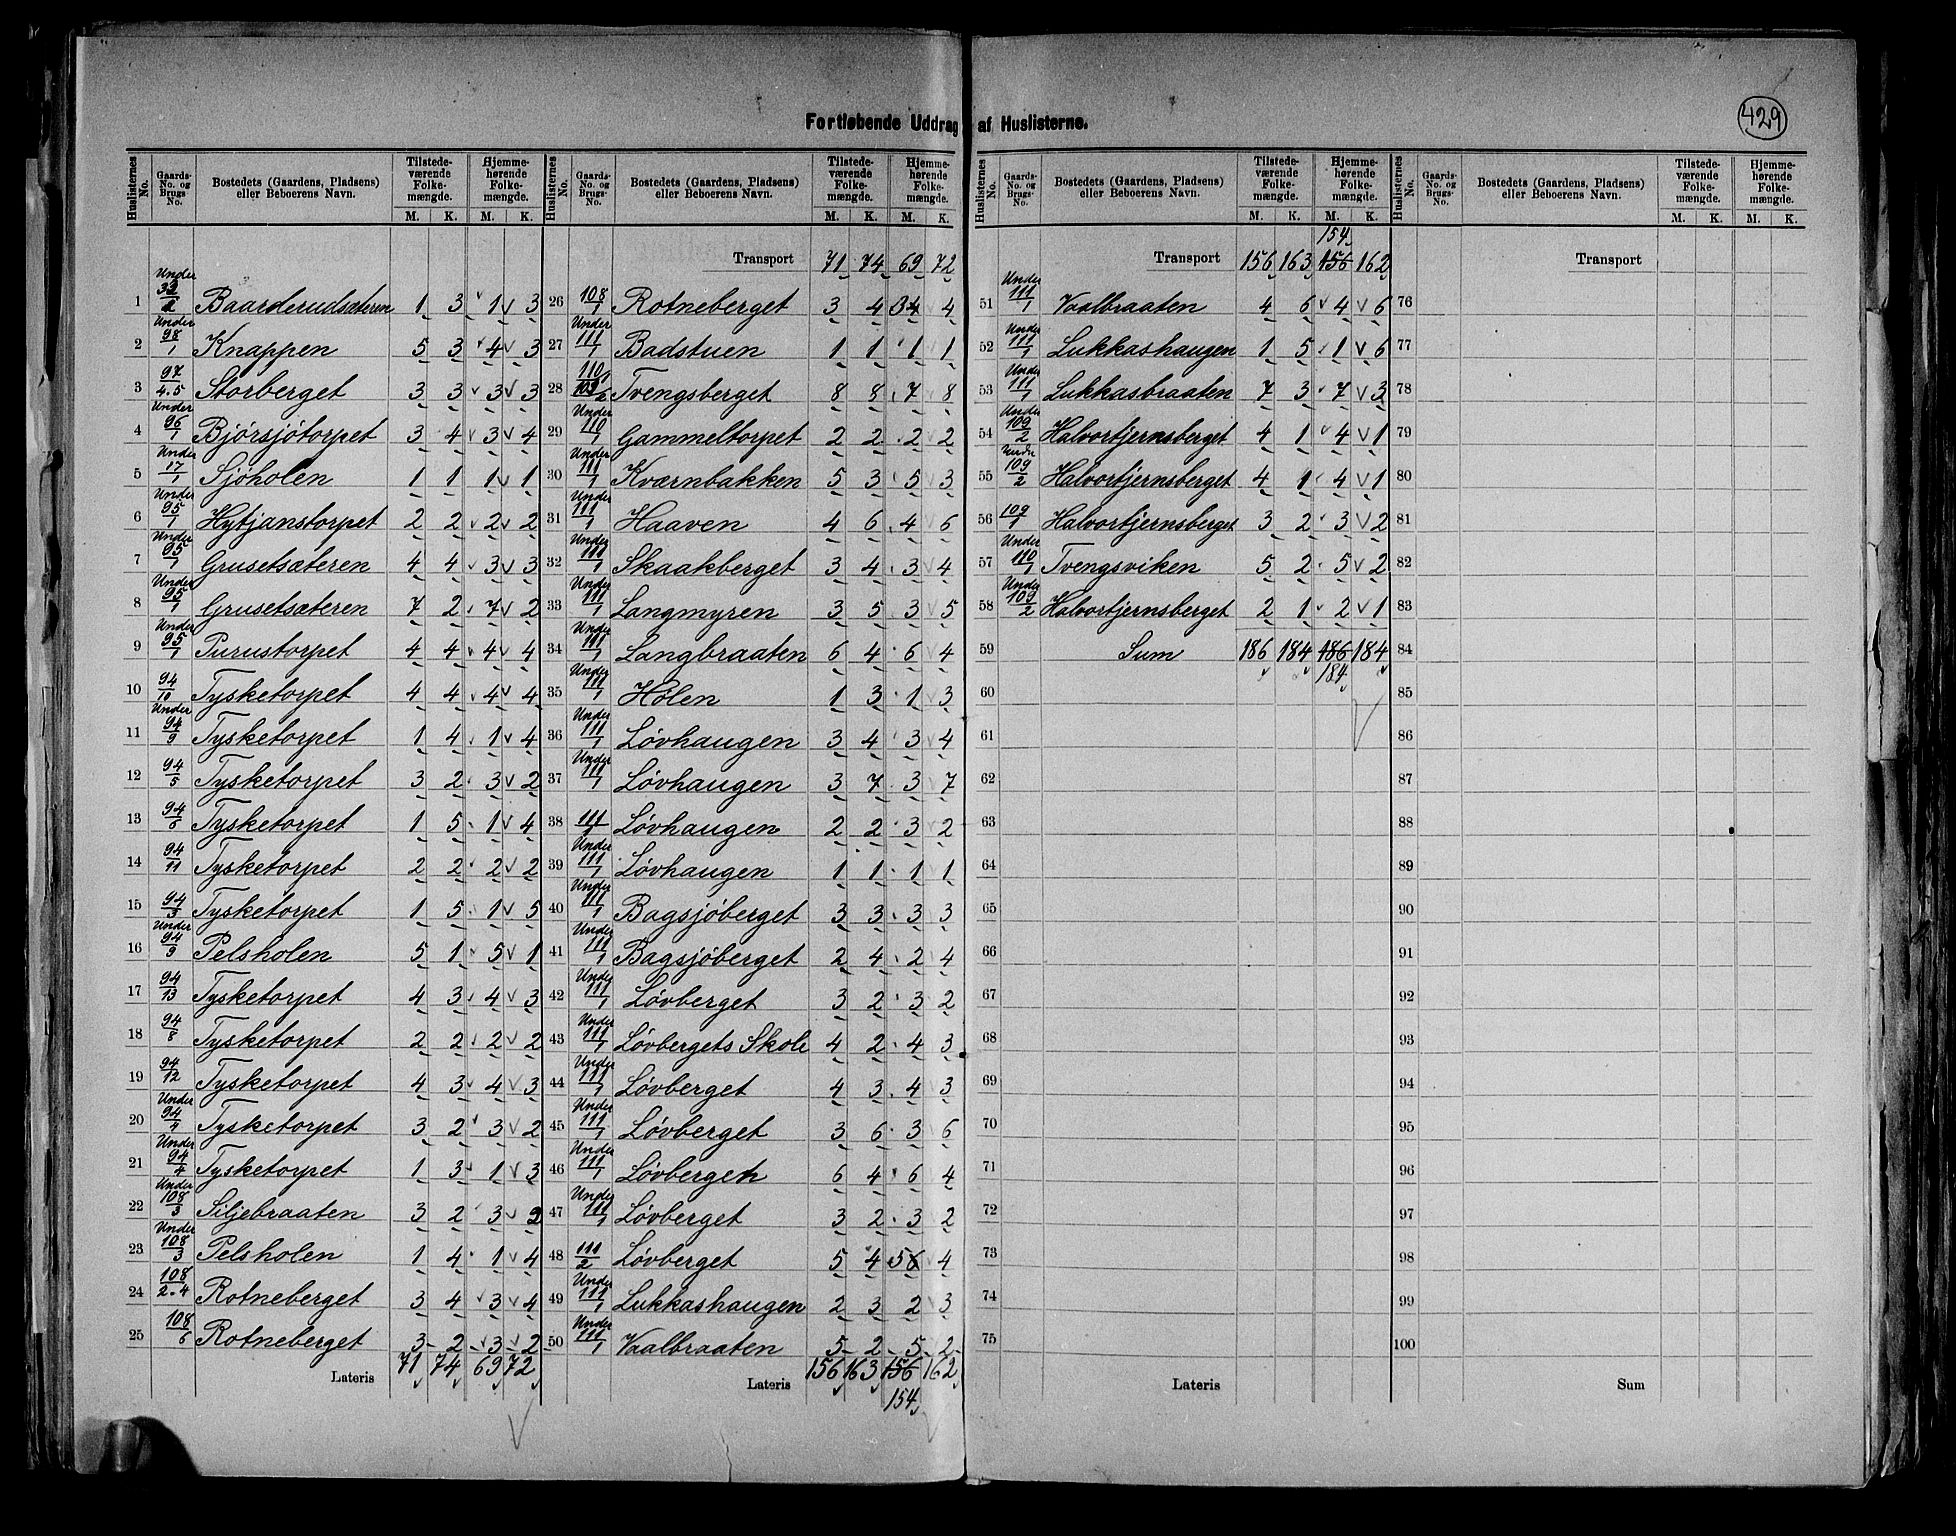 429
Fortløbende Uddrag af Huslisterne.
Huslisternes No. | Gaards-No. og Brugs-No. | Bostedets (Gaardens, Pladsens) eller Beboerens Navn. | Tilstedeværende Folkemængde. M. K. | Hjemmehørende Folkemængde. M. K.
1 Under 33/2 Baarderudsæteren 1 3 1 3
2 Under 98/1 Knappen 5 3 4 3
3 97/4.5 Storberget 3 3 3 3
4 Under 96/1 Bjørsjøtorpet 3 4 3 4
5 Under 17/1 Sjøholen 1 1 1 1
6 Under 95/1 Hytjanstorpet 2 2 2 2
7 Under 95/1 Grusetsæteren 4 4 3 3
8 Under 95/1 Grusetsæteren 7 2 7 2
9 Under 95/1 Purustorpet 4 4 4 4
10 94/10 Tysketorpet 4 4 4 4
11 Under 94/9 Tysketorpet 1 4 1 4
12 94/5 Tysketorpet 3 2 3 2
13 94/6 Tysketorpet 1 5 1 4
14 94/11 Tysketorpet 2 2 2 2
15 94/3 Tysketorpet 1 5 1 5
16 Under 94/9 Pelsholen 5 1 5 1
17 94/13 Tysketorpet 4 3 4 3
18 94/8 Tysketorpet 2 2 2 2
19 94/12 Tysketorpet 4 3 4 3
20 Under 94/4 Tysketorpet 3 2 3 2
21 Under 94/4 Tysketorpet 1 3 1 3
22 Under 108/3 Siljebraaten 3 2 3 2
23 Under 108/3 Pelsholen 1 4 1 4
24 108/2.4 Rotneberget 3 4 3 4
25 108/6 Rotneberget 3 2 3 2
Lateris 71 74 69 72
Huslisternes No. | Gaards-No. og Brugs-No. | Bostedets (Gaardens, Pladsens) eller Beboerens Navn. | Tilstedeværende Folkemængde. M. K. | Hjemmehørende Folkemængde. M. K.
Transport 71 74 69 72
26 108/1 Rotneberget 3 4 34 4
27 Under 111/1 Badstuen 1 1 1 1
28 110/1 109/2 Tvengsberget 8 8 7 8
29 Under 110/1 Gammeltorpet 2 2 2 2
30 Under 111/1 Kværnbakken 5 3 5 3
31 Under 111/1 Haaven 4 6 4 6
32 Under 111/1 Skaakberget 3 4 3 4
33 Under 111/1 Langmyren 3 5 3 5
34 Under 111/1 Langbraaten 6 4 6 4
35 Under 111/1 Holen 1 3 1 3
36 Under 111/1 Løvhaugen 3 4 3 4
37 Under 111/1 Løvhaugen 3 7 3 7
38 111/1 Løvhaugen 2 2 3 2
39 Under 111/1 Løvhaugen 1 1 1 1
40 Under 111/1 Bagsjøberget 3 3 3 3
41 Under 111/1 Bagsjøberget 2 4 2 4
42 Under 111/1 Løvberget 3 2 3 2
43 Under 111/1 Løvbergets Skole 4 2 4 3
44 Under 111/1 Løvberget 4 3 4 3
45 Under 111/1 Løvberget 3 6 3 6
46 Under 111/1 Løvberget 6 4 6 4
47 Under 111/1 Løvberget 3 2 3 2
48 111/2 Løvberget 5 4 56 4
49 Under 111/1 Lukkashaugen 2 3 2 3
50 Under 111/1 Vaalbraaten 5 2 5 2
Lateris 156 163 156 162
154
Huslisternes No. | Gaards-No. og Brugs-No. | Bostedets (Gaardens, Pladsens) eller Beboerens Navn. | Tilstedeværende Folkemængde. M. K. | Hjemmehørende Folkemængde. M. K.
154
Transport 156 163 156 162
51 Under 111/1 Vaalbraaten 4 6 4 6
52 Under 111/1 Lukkashaugen 1 5 1 6
53 Under 111/1 Lukkasbraaten 7 3 7 3
54 Under 109/2 Halvortjernsberget 4 1 4 1
55 Under 109/2 Halvortjernsberget 4 1 4 1
56 109/1 Halvortjernsberget 3 2 3 2
57 Under 110/1 Tvengsviken 5 2 5 2
58 Under 109/2 Halvortjernsberget 2 1 2 1
59 Sum 186 184 186 184
184
60
61
62
63
64
65
66
67
68
69
70
71
72
73
74
75
Lateris
Huslisternes No. | Gaards-No. og Brugs-No. | Bostedets (Gaardens, Pladsens) eller Beboerens Navn. | Tilstedeværende Folkemængde. M. K. | Hjemmehørende Folkemængde. M. K.
Transport
76
77
78
79
80
81
82
83
84
85
86
87
88
89
90
91
92
93
94
95
96
97
98
99
100
Sum